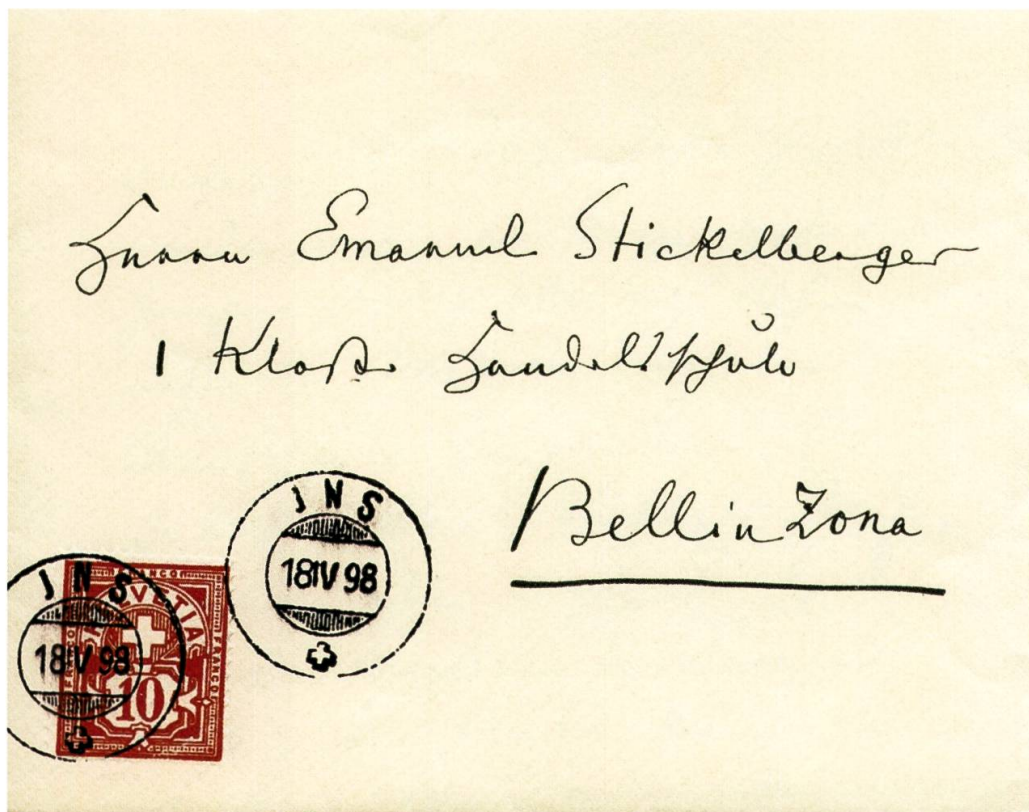 Herrn Emanuel Stickelberger
1 Klaße Handelsschule
Bellinzona
JNS
18 IV 98
JNS
18 IV 98
FRANCO
HELVETIA
FRANCO
FRANCO
10